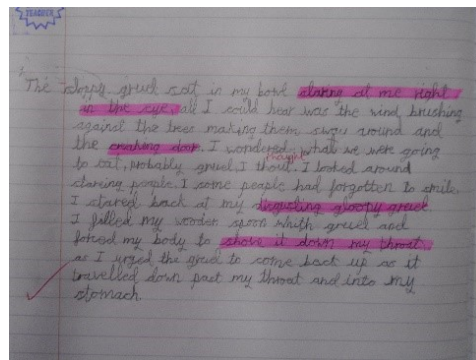 TEACHER
The sloppy gruel sat in my bowl staring at me right
in the eye, all I could hear was the wind brushing
against the trees making them sway around and
the creaking door. I wondered what we were going
thought
to eat, probably gruel I thout. I looked around
stareing people. I some people had forgotten to smile.
I stared back at my disgusting gloopy gruel
I filled my wooden spoon whith gruel and
forced my body to shove it down my throat.
as I urged the gruel to come back up as it
travelled down past my throat and into my
stomach.